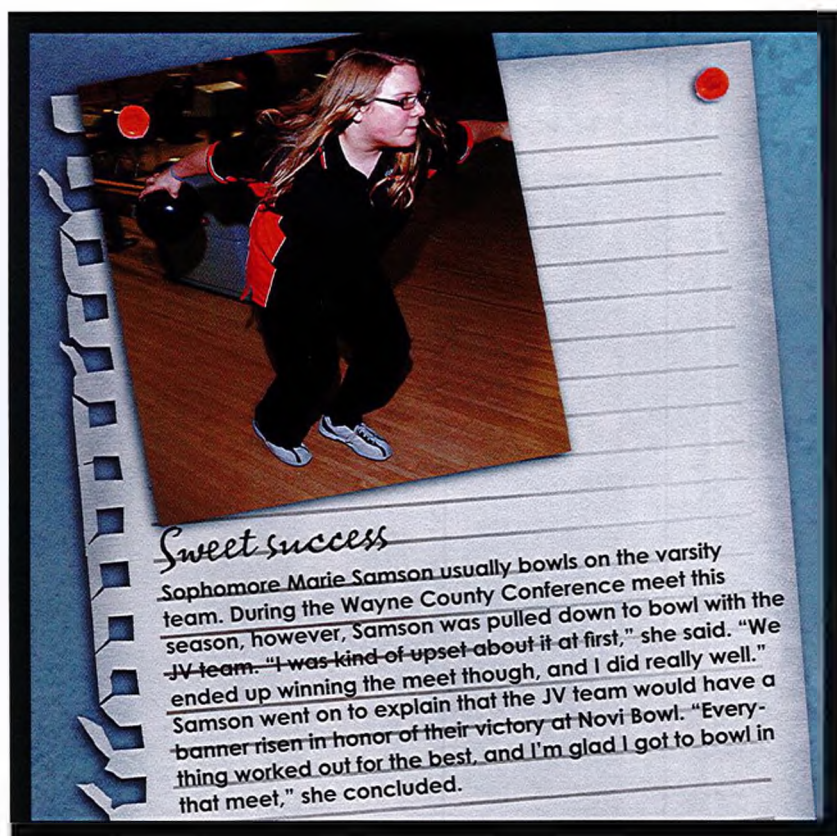 Sweet success
Sophomore Marie Samson usually bowls on the varsity
team. During the Wayne County Conference meet this
season, however, Samson was pulled down to bowl with the
JV team. “I was kind of upset about it at first,” she said. “We
ended up winning the meet though, and I did really well.”
Samson went on to explain that the JV team would have a
banner risen in honor of their victory at Novi Bowl. “Every-
thing worked out for the best, and I’m glad I got to bowl in
that meet,” she concluded.